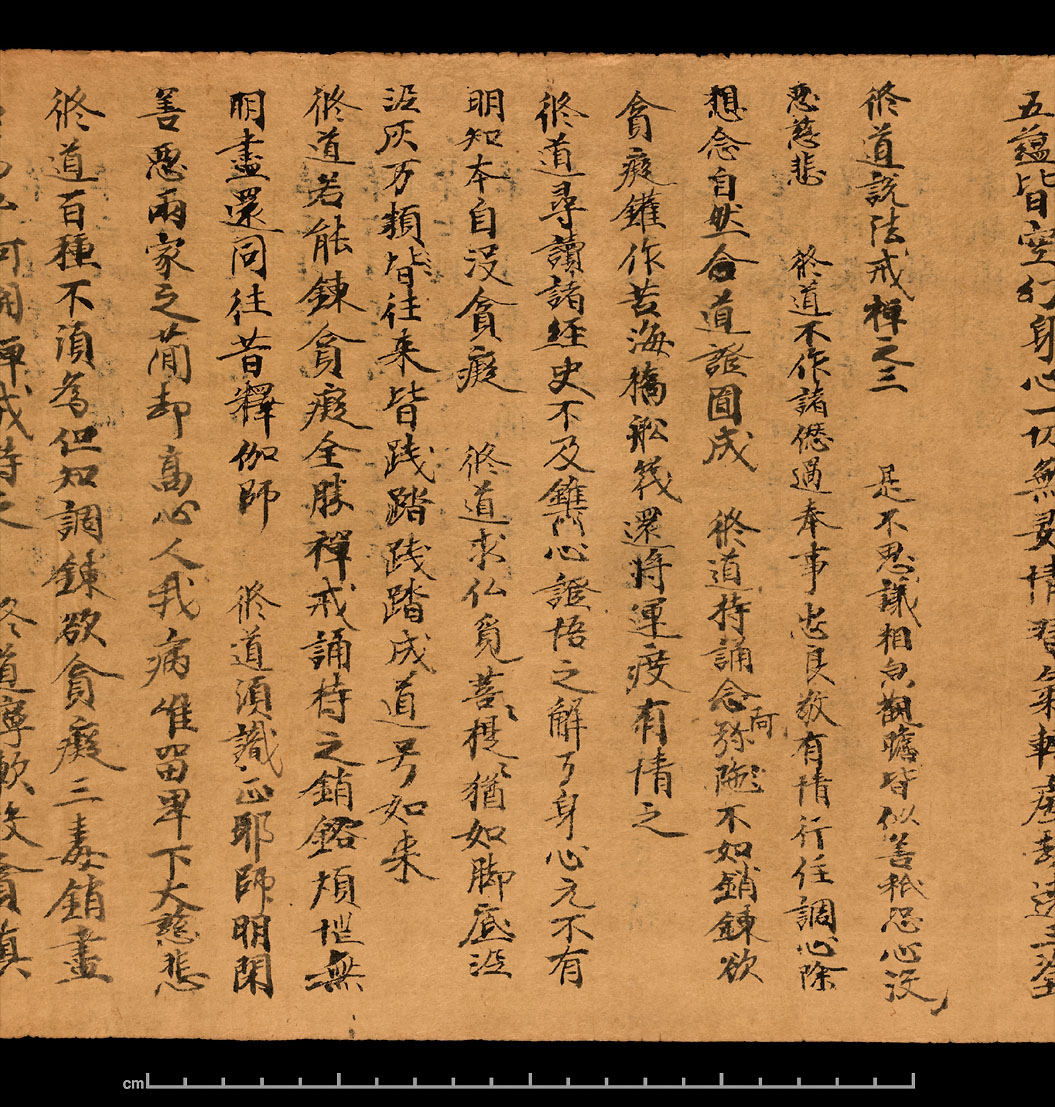 五蘊皆空幻身心一切無妄情
修道說法戒禪之三　是不思議相勿觀瞻皆似善秖恐心沒
惡慈悲　修道不作諸愆過奉事忠良敬有情行住調心除
想念自然合道證圓成　修道持誦念弥阿陁不如銷鍊欲
貪癡鑵作苦海橋舩筏還將運度有情之
修道尋讀諸經史不及鐫心證悟之解了身心元不有
明知本自沒貪癡　修道求仏覓菩提猶如脚底泥
泥灰万類皆往來皆踐踏踐踏成道号如来
修道若能鍊貪癡全勝禪戒誦持之銷鎔煩惱無
明盡還同往昔釋伽師　修道須識正耶師明閑
善惡兩家之蕳却高心人我病唯留卑下大慈悲
修道百種不須為但知調鍊欲貪癡三毒銷盡